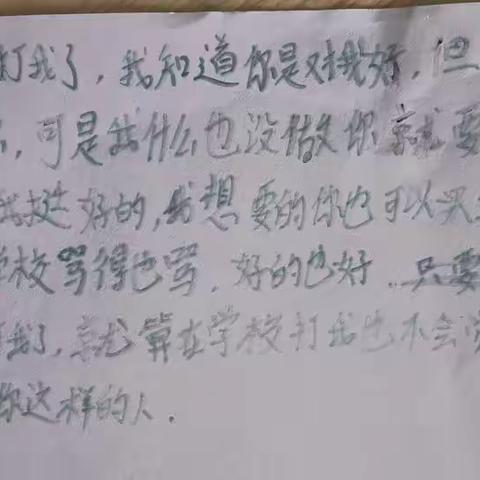 打我了，我知道你是对我好，但
，可是我什么也没做你就要
我挺好的，我想要的你也可以买
学校骂得也骂，好的也好，只要
我了，就算在学校打我也不会
你这样的人．